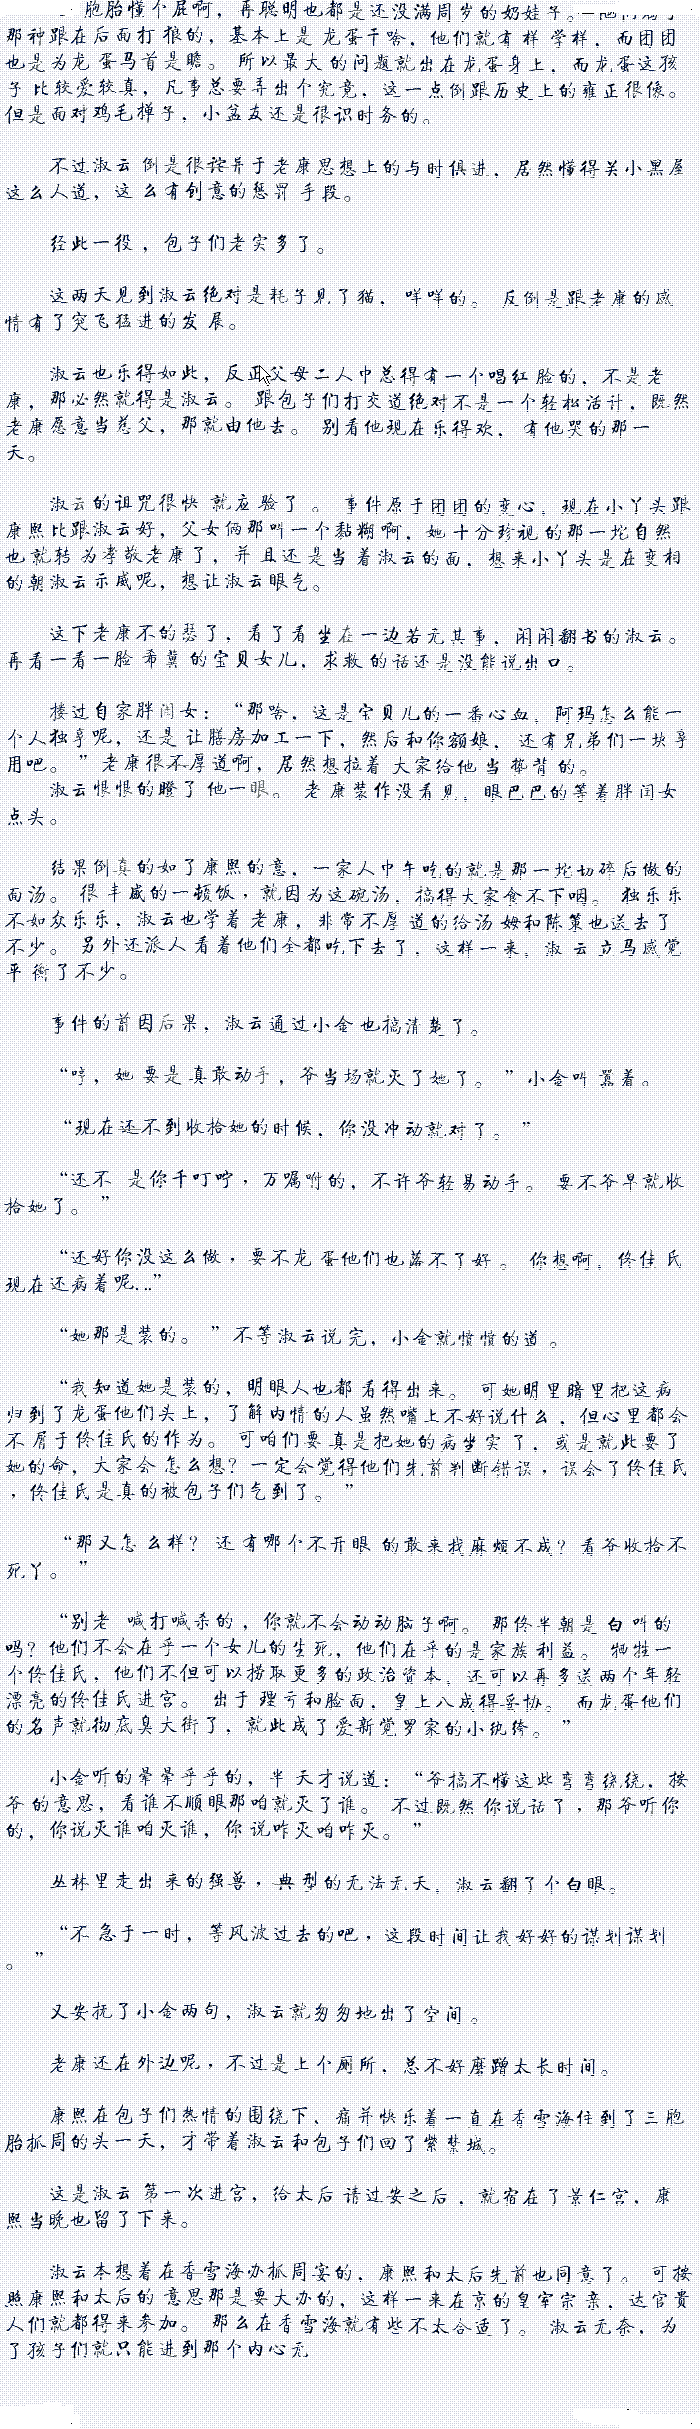 胞胎懂个屁啊，再聪明也都是还没满周岁的奶娃子。
那种跟在后面打狼的，基本上是 龙蛋干啥，他们就有样 学样，而团团
也是为龙 蛋马首是瞻。 所以最大的问题就出在龙蛋身上，而龙蛋这孩
子 比较爱较真，凡事总要弄出个究竟，这一点倒跟历史上的雍正很像。
但是面对鸡毛掸子，小盆友还是很识时务的。
不过淑云 倒是很诧异于老康思想上的与时俱进，居然懂得关小黑屋
这么人道，这 么有创意的惩罚 手段。
经此一役 ，包子们老实多了。
这两天见到淑云绝对是耗子见了猫，咩咩的。 反倒是跟老康的感
情有了突飞猛进的发 展。
淑云也乐得如此，反正父母二人中总得有一个唱红 脸的，不是老
康，那必然就得是淑云。 跟包子们打交道绝对不是一个轻松活计，既然
老康愿意当慈父，那就由他去。 别看他现在乐得欢，有他哭的那一
天。
淑云的诅咒很快 就应 验了 。 事件原于团团的变心，现在小丫头跟
康熙 比跟淑云好，父女俩那叫一个黏糊啊，她 十分珍视 的那一坨自然
也就转 为孝敬老康了，并 且还 是当 着淑云的面，想来小丫头是在变相
的朝淑云示威呢，想让淑云眼气。
这下老康不的瑟了，看了看 坐在一边若无其事，闲闲翻书的淑云。
再看一看一脸 希冀 的宝贝女儿，求救 的话还是没能说出口。
搂过自家胖闺女：“那啥，这是宝贝儿的一番心血，阿玛怎么能一
个人独享呢，还是 让膳房加工一下，然后和你额娘， 还有兄弟们一块享
用吧。 ” 老康很不厚道啊，居然想拉着 大家给他 当 垫背 的。
淑云恨恨的瞪了 他一眼。 老康装作没看见，眼巴巴的等着胖闺女
点头。
结果倒真的如了康熙的意，一家人中午吃的就是那一坨切碎后做的
面汤。 很 丰盛的一顿饭，就因为这碗汤，搞得大家食不下咽。 独乐乐
不如众乐乐，淑云也学着 老康，非常不厚 道的给汤 姆和陈策也送去了
不少。 另外还派人 看着他们全都吃下去了，这样一来，淑 云 立马感觉
平 衡了不少。
事件的前因后果，淑云通过小金也搞清 楚了。
“哼，她 要是真敢动手，爷当场就灭了她了。 ” 小金叫 嚣着。
“现在还不到收拾她的时候，你没冲动就对了。 ”
“还不 是你千叮咛，万嘱咐的，不许爷轻易动手。 要不爷早就收
拾她了。 ”
“还好你没这么做，要不龙 蛋他们也落不了好。 你想啊，佟佳 氏
现在还病着呢...”
“她那是装的。 ” 不等淑云说 完，小金就愤愤的道 。
“我 知道她是装的，明眼人也都 看得出来。 可她明里暗里把这病
归到了龙蛋他们头上，了解内情的人虽然嘴上不好说什么 ，但心里都会
不 屑于佟佳氏的作为。 可咱们要真是把她的病坐实 了，或是就此要了
她的命，大家会 怎么想？一定会觉得他们先前判断错误，误会了佟佳氏
，佟佳氏是真的被包子们气到了。 ”
“那又怎 么样？ 还 有哪个不开眼 的敢来找麻烦不成？看爷收拾不
死丫。 ”
“别老 喊打喊杀的，你就不会动动脑子啊。 那佟半朝是 白 叫的
吗？他们不会在乎一个女儿的生死，他们在乎的是家族 利益。 牺牲一
个佟佳氏，他们不但可以捞取更多的政治资本，还可以再多送 两个年轻
漂亮的佟佳氏进宫。 出于 理亏和脸面，皇上八成得妥协。 而龙蛋他们
的名声就彻底臭大街了，就此成了爱新觉罗家的小纨绔。 ”
小金听的晕晕乎乎的，半 天才说道：“爷搞不懂这些 弯弯绕绕，按
爷 的意思，看谁不顺眼那咱就灭了谁。 不过既然 你说话了，那爷听你
的，你说灭谁咱灭谁，你 说咋灭咱咋灭。 ”
丛林里走出 来的强兽，典型的无法无天，淑云翻了个白眼。
“不 急于一时，等风波过去的吧，这段时间让我 好好的谋划谋划
。 ”
又安抚了小金两句，淑云就匆匆地出了空间。
老康还在外边呢，不过是上个厕所，总不好磨蹭太长时间。
康熙在包子们热情的围绕下，痛并快乐着一直在香雪海住到了三胞
胎抓周的头一天，才带着淑云和包子们回了紫 禁城。
这是淑云 第一次进宫，给太后 请过安之后 ，就宿在了景仁宫，康
熙当晚也留了下来。
淑云本想着在香雪海办抓周宴的，康熙和太后先前也同意了。 可按
照康熙和太后的 意思那是要大办的，这样一来在京的皇室宗亲，达官贵
人们就都得来参加。 那么在香雪海就有些不太合适了。 淑云无奈，为
了孩子们就只能进到那个内心无